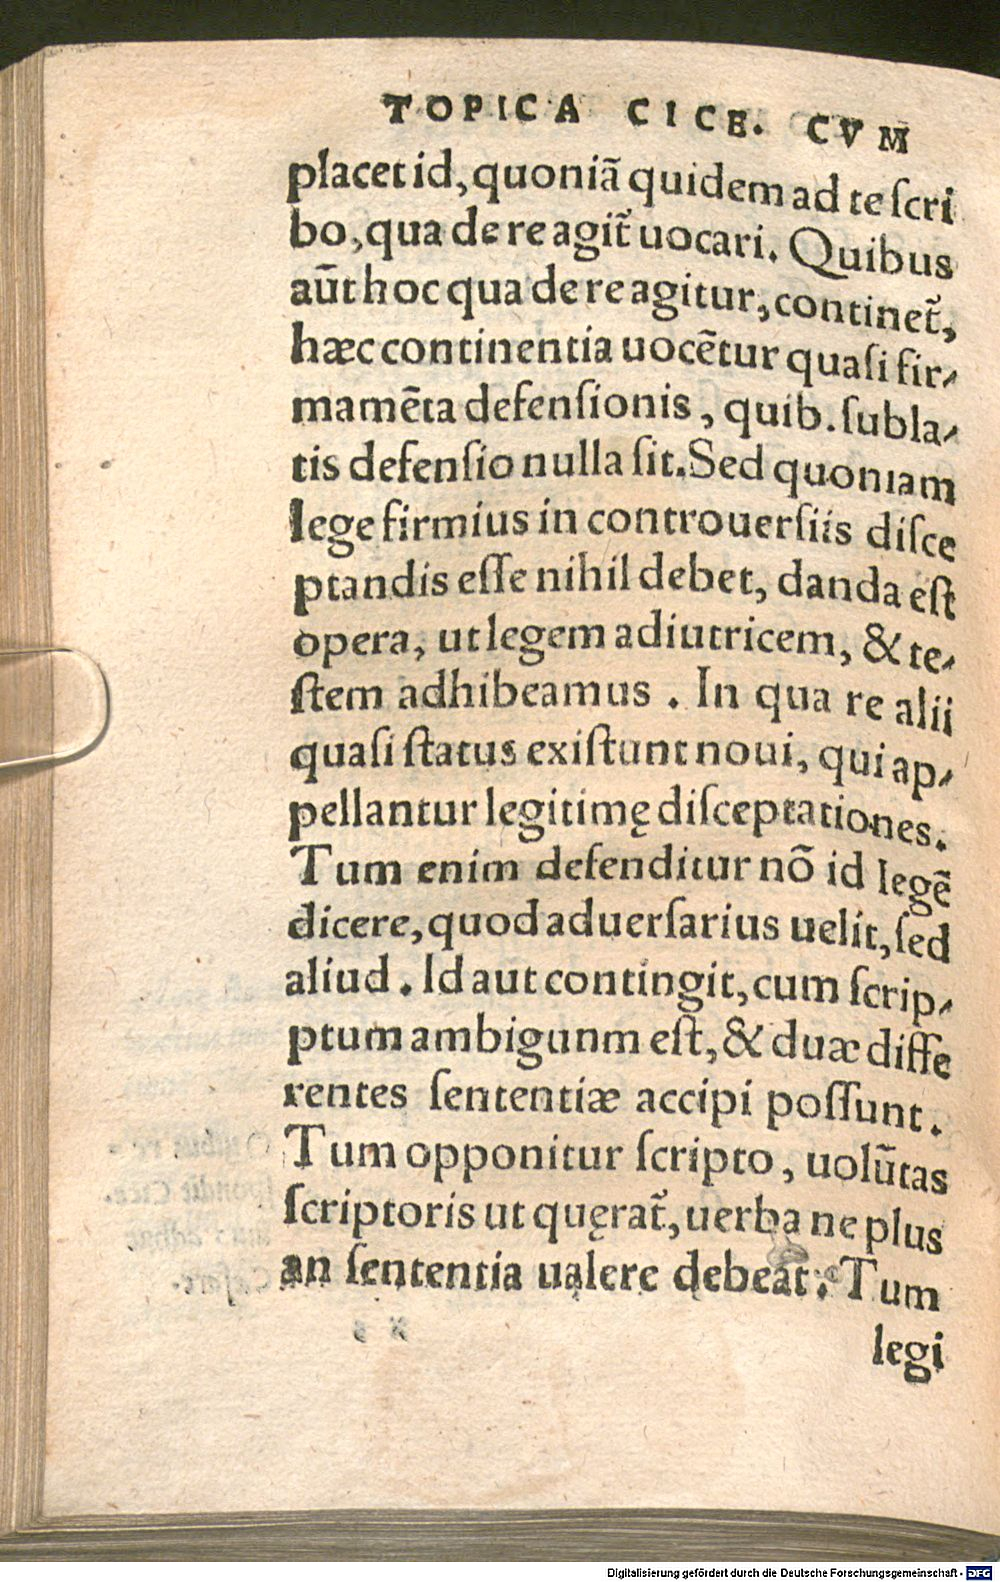 TOPICA CICE. CVM
placet id, quoniã quidem ad te ſcri
bo, qua de re agit̃ uocari. Quibus
aũt hoc qua de re agitur, continet̃,
hæc continentia uocẽtur quaſi fir-
mamẽta defenſionis, quib. ſubla-
tis defenſio nulla ſit. Sed quoniam
lege firmius in controuerſiis diſce
ptandis eſſe nihil debet, danda eſt
opera, ut legem adiutricem, & te-
ſtem adhibeamus. In qua re alii
quaſi ſtatus exiſtunt noui, qui ap-
pellantur legitimę diſceptationes.
Tum enim defenditur nõ id legẽ
dicere, quod aduerſarius uelit, ſed
aliud. Id aut contingit, cum ſcrip-
ptum ambigunm eſt, & duæ diffe
rentes ſententiæ accipi poſſunt.
Tum opponitur ſcripto, uolũtas
ſcriptoris ut quęrat̃, uerba ne plus
an ſententia ualere debeat. Tum
legi
Digitalisierung gefördert durch die Deutsche Forschungsgemeinschaft - DFG